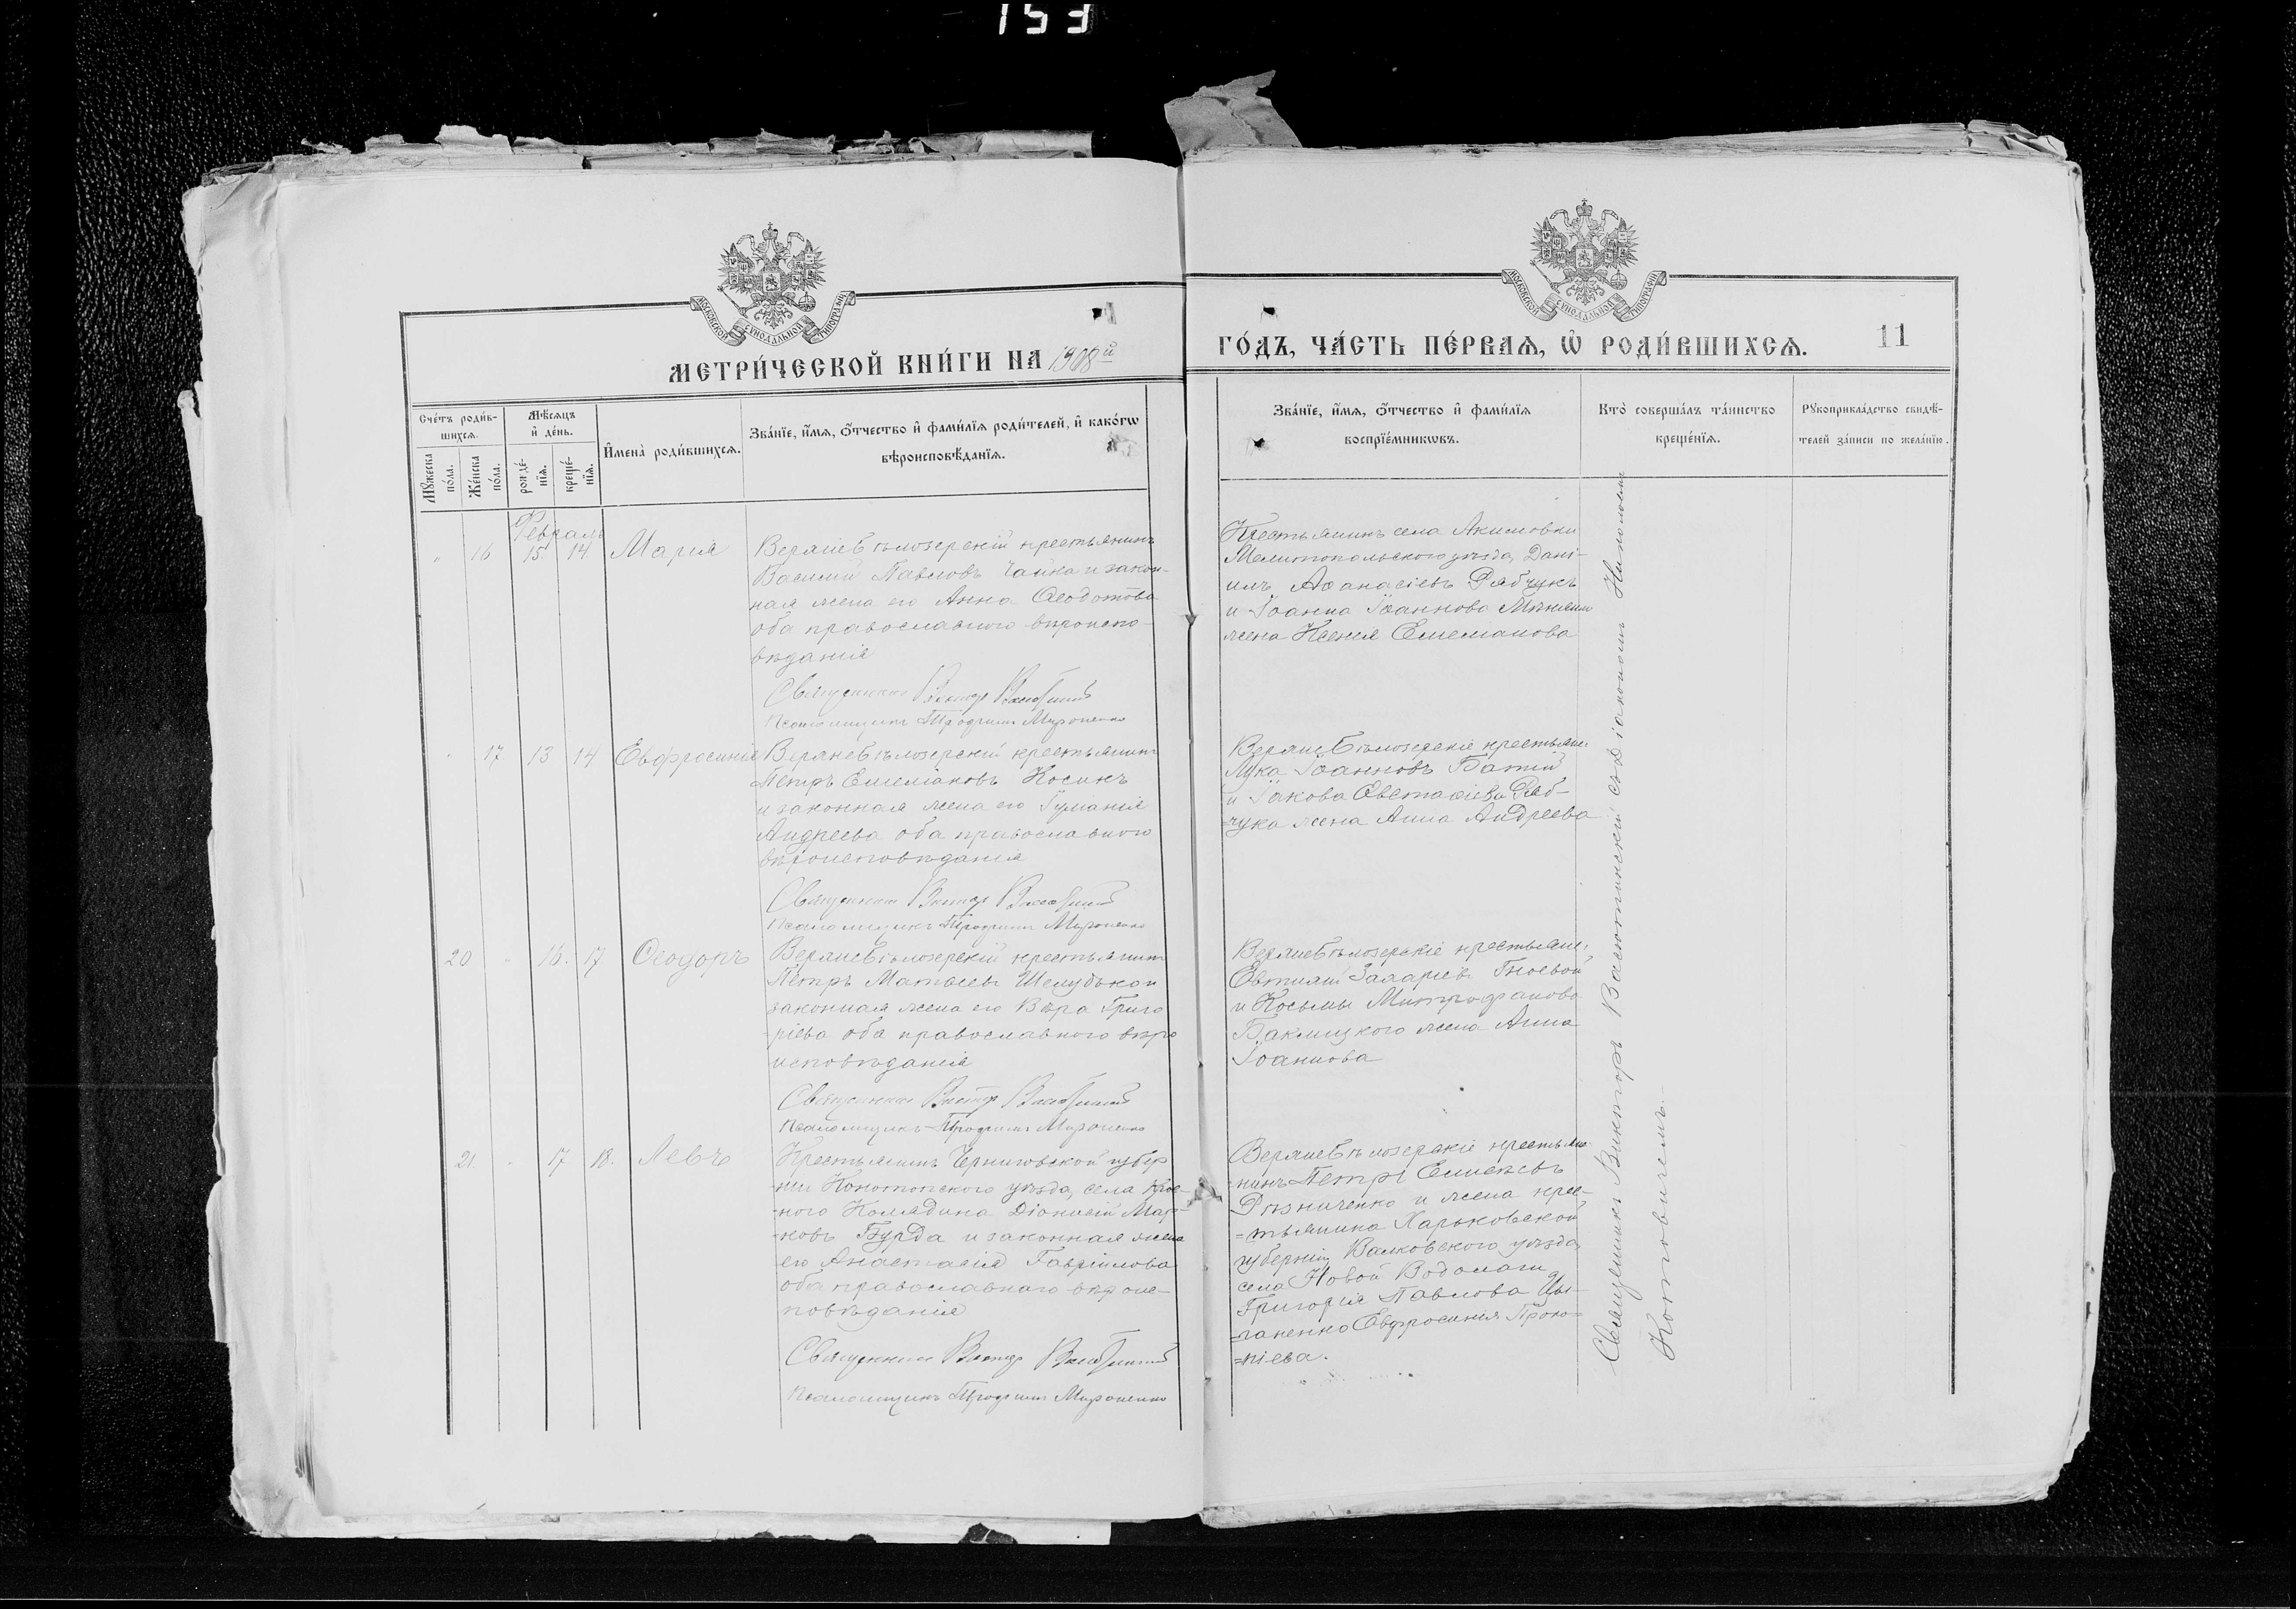 153
МОСКОВСКОЙ СѴНОДАЛЬНОЙ ТИПОГРАФІИ
МОСКОВСКОЙ СѴНОДАЛЬНОЙ ТИПОГРАФІИ
МЕТРИ́ЧЕСКОЙ КНИ́ГИ НА 1908й
ГО́ДЪ, ЧА́СТЬ ПЕ́РВАѦ, Ѽ РОДИ́ВШИХСѦ.
11
Сче́тъ роди́в-
шихсѧ.
Мꙋ́жеска по́ла.
Же́нска по́ла.
Мѣ́сѧцъ
и҆ де́нь.
рожде́-
нїѧ.
креще́-
нїѧ.
И҆мена̀ роди́вшихсѧ.
Зва́нїе, и҆́мѧ, ѻ҆́тчество и҆ фами́лїѧ роди́телей, и҆ како́гѡ
вѣроисповѣ́данїѧ.
Зва́нїе, и҆́мѧ, ѻ҆́тчество и҆ фами́лїѧ
воспрїе́мникѡвъ.
Кто̀ соверша́лъ та́инство
креще́нїѧ.
Рꙋкоприкла́дство свидѣ́-
телей за́писи по жела́нїю.
Февраль
" 16 15 14 Марія
Верхнебѣлозерскій крестьянинъ
Василій Павловъ Чайка и закон-
ная жена его Анна Ѳеодотова
оба православного вѣроиспо-
вѣданія
Священникъ Викторъ Васютинскій
Псаломщикъ Трофимъ Мироненко
Крестьянинъ села Акимовки
Мелитопольскаго уѣзда, Дані-
илъ Аѳанасіевъ Рябчукъ
и Іоанна Іоаннова
жена Ксенія Емеліанова
" 17 13 14 Евфросинія
Верхнебѣлозерскій крестьянинъ
Петръ Емеліановъ Косикъ
и законная жена его Іуліанія
Андреева оба православного
вѣроисповѣданія
Священникъ Викторъ Васютинскій
Псаломщикъ Трофимъ Мироненко
Верхнебѣлозерскіе крестьяне:
Лука Іоанновъ Батій
и Іакова Евстаѳіева Ряб-
чука жена Анна Андреева
20 " 16. 17 Ѳеодоръ
Верхнебѣлозерскій крестьянинъ
Петръ Матѳеевъ Шелудько и
законная жена его Вѣра Григо
-ріева оба православного вѣро
исповѣданія
Священникъ Викторъ Васютинскій
Псаломщикъ Трофимъ Мироненко
Верхнебѣлозерскіе крестьяне:
Евтихій Захаріевъ Гноевой
и Косьмы Митрофанова
Баклицкого жена Анна
Іоаннова
21. " 17 18. Левъ
Крестьянинъ Черниговской губер
-ніи Конотопского уѣзда, села Крас-
-ного Колядина Діонисій Мар-
-ковъ Бурда и законная жена
его Анастасія Гавріилова
оба православнаго вѣроис-
повѣданія
Священникъ Викторъ Васютинскій
Псаломщикъ Трофимъ Мироненко
Верхнебѣлозерскіе крестья-
-нинъ Петръ Елисеевъ
Рѣзниченко и жена крес-
=тьянина Харьковской
губерніи Валковского уѣзда,
села Новой Водолаги
Григорія Павлова Цы-
=ганенко Евфросинія Проко=
=піева.
Священникъ Викторъ Васютинскій съ Діакономъ Николаемъ
Котовичемъ.